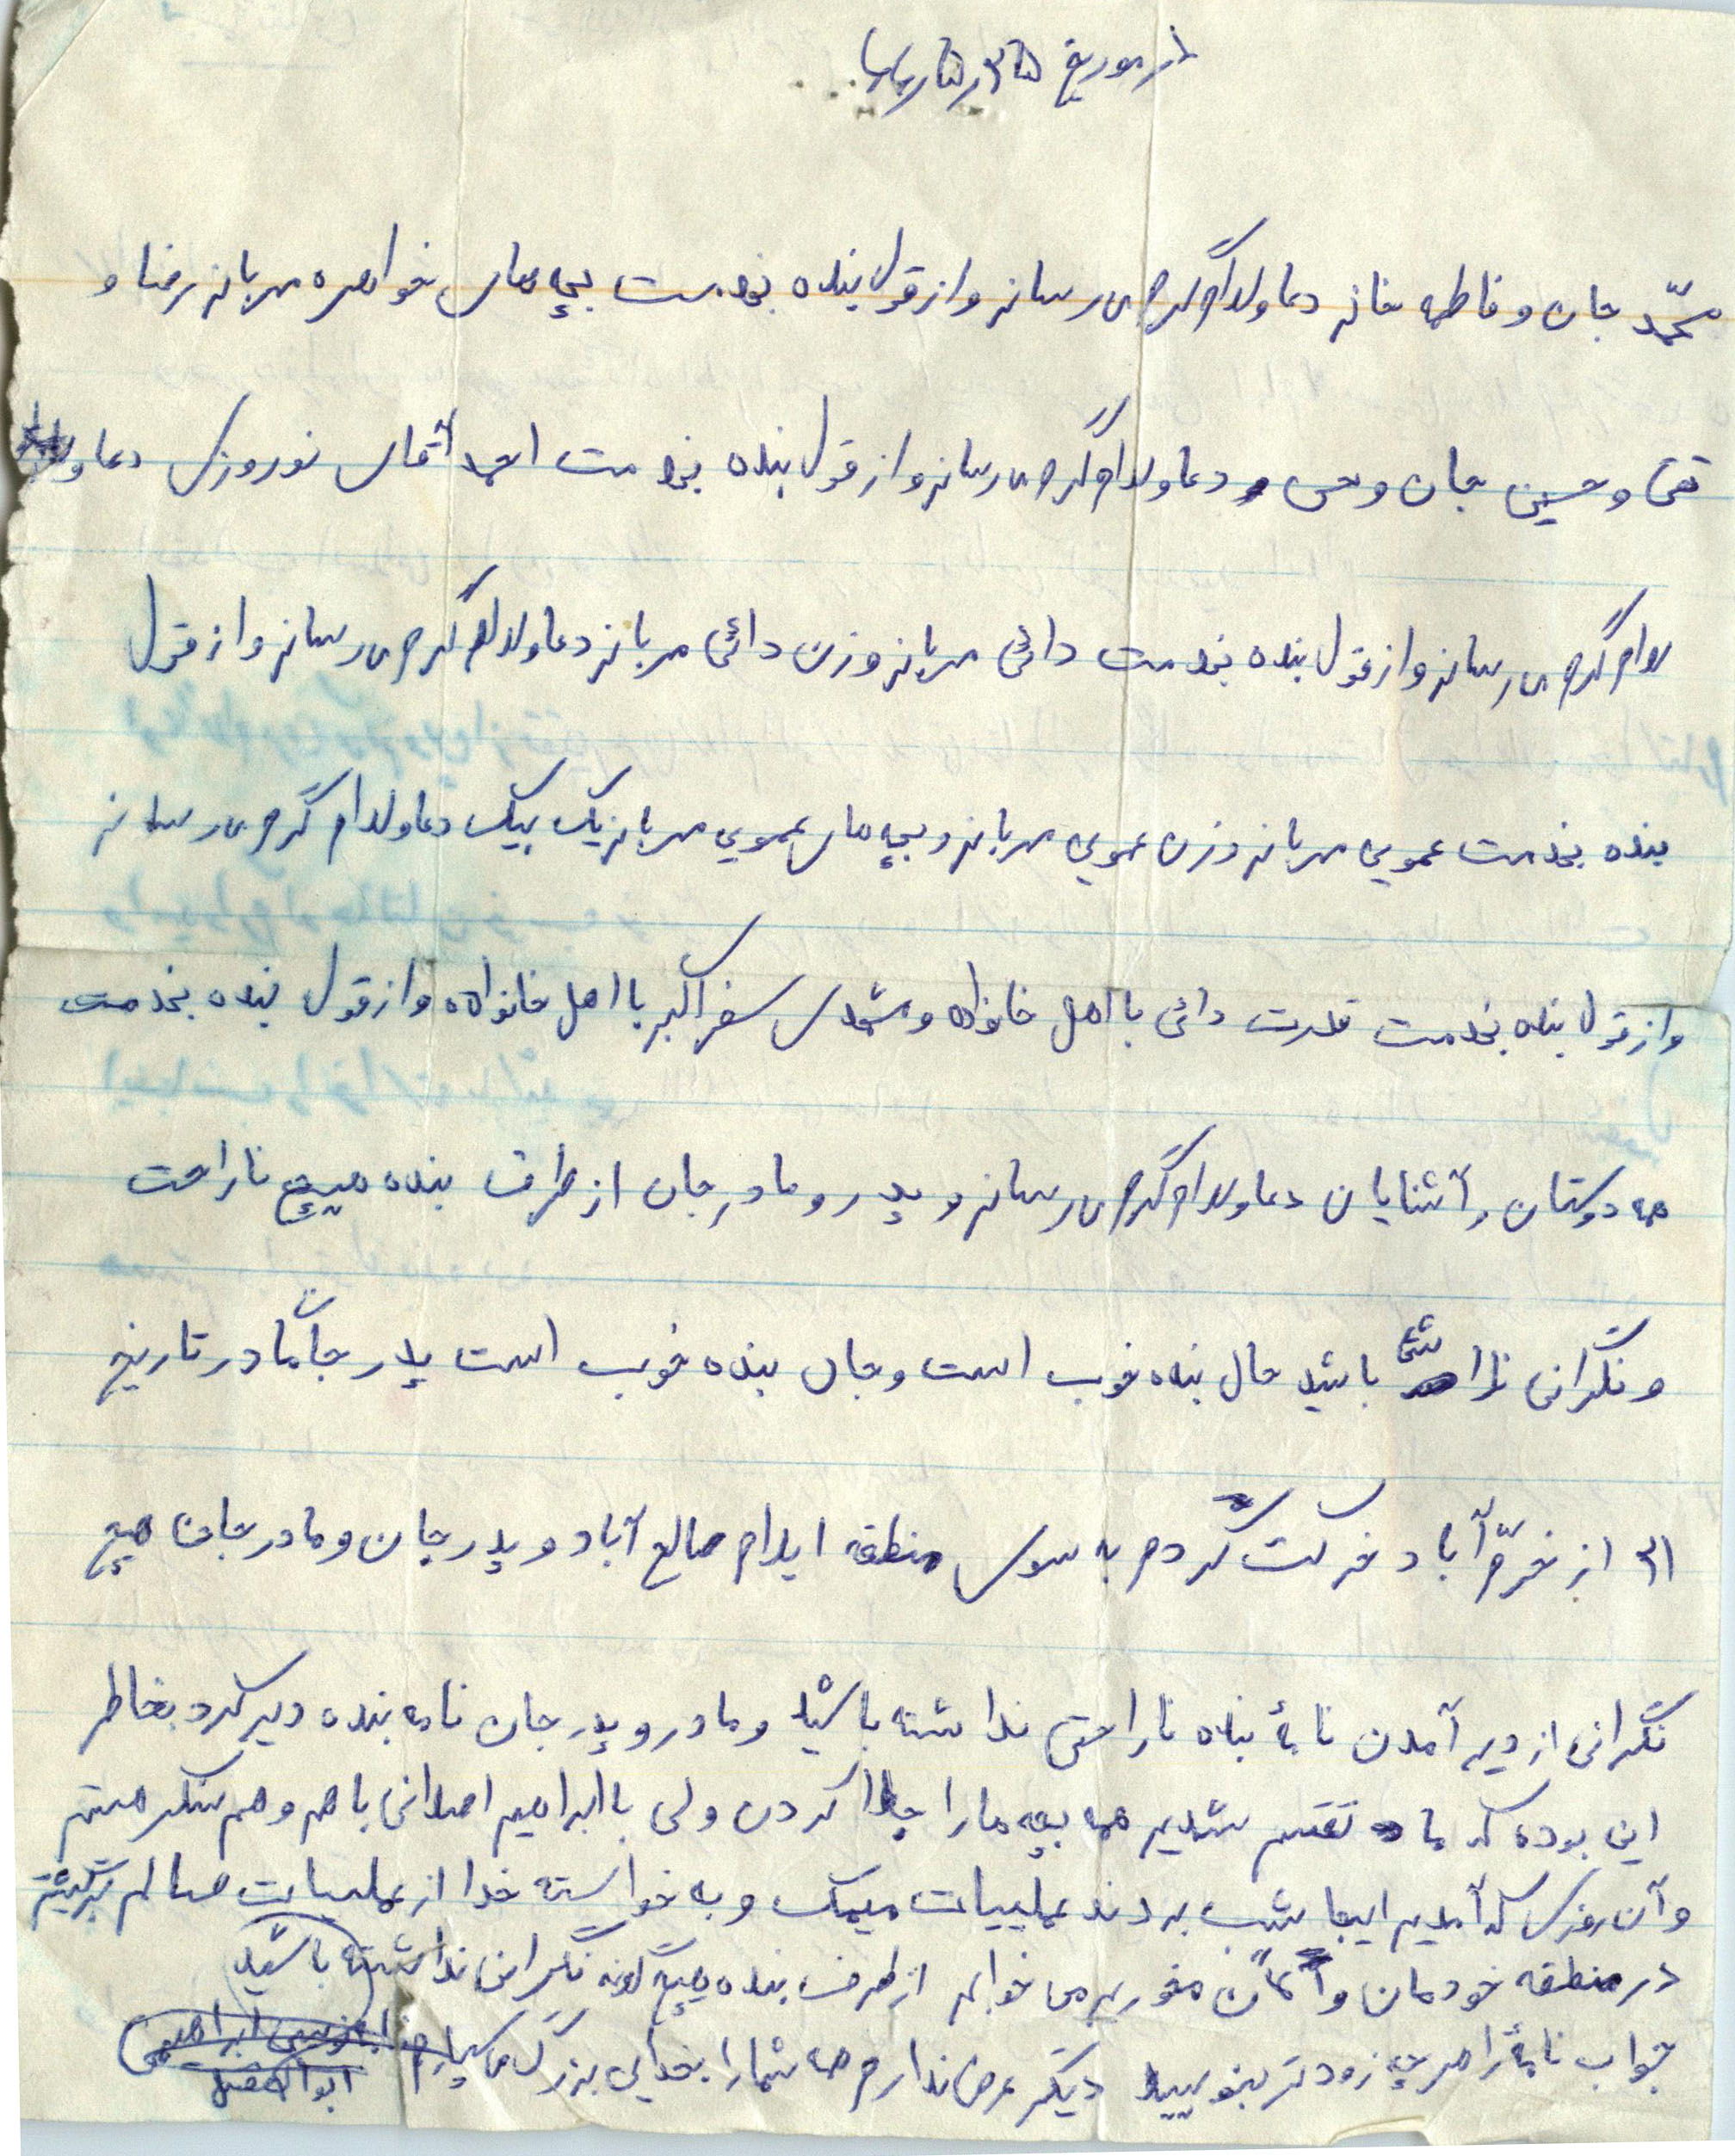 محمّد جان و فاطمه خانم دعا و سلام گرم می رسانم و از قول بنده بخدمت بچه های خواهره مهربانم رضا و
تقی و حسین جان و دعا و سلام گرم می رسانم و از قول بنده بخدمت احمد آقای نوروزی دعا و
سلام گرم می رسانم و از قول بنده بخدمت دائی مهربانم و زن دائی مهربانم دعا و سلام گرم می رسانم و از قول
بنده بخدمت عموی مهربانم و زن عموی مهربانم و بچه های عموی مهربانم یک بیک دعا و سلام گرم می رسانم
و از قول بنده بخدمت قدرت دائی با اهل خانواده و مشدی سفر اکبر با اهل خانواده و از قول بنده بخدمت
همه دوستان و آشنایان دعا و سلام گرم می رسانم و پدر و مادر جان از طرف بنده هیچ ناراحت
و نگرانی نداشته باشید حال بنده خوب است و جان بنده خوب است پدر جان ما در تاریخ
۳۱ از خرّم آباد حرکت کردم به سوی منطقه ایلام صالح آباد و پدر جان و مادر جان هیچ
نگرانی از دیر آمدن نامۀ بنده ناراحتی نداشته باشید و مادر و پدر جان نامه بنده دیر کرد بخاطر
این بوده که ما تقسیم شدیم همه بچه ها را جدا کردن ولی با ابراهیم اصلانی باهم و هم سنگر هستم
و آن روزی که آمدیم اینجا شب بردند عملیات میمک و به خواسته خدا از عملیات سالم برگشتم
در منطقه خودمان و می خوریم می خوابم از طرف بنده هیچ گونه نگرانی نداشته باشید
جواب نامۀ را هر چه زودتر بنویسید دیگر عرض ندارم همه شما را بخدای بزرگ می سپارم
ابوالفضل